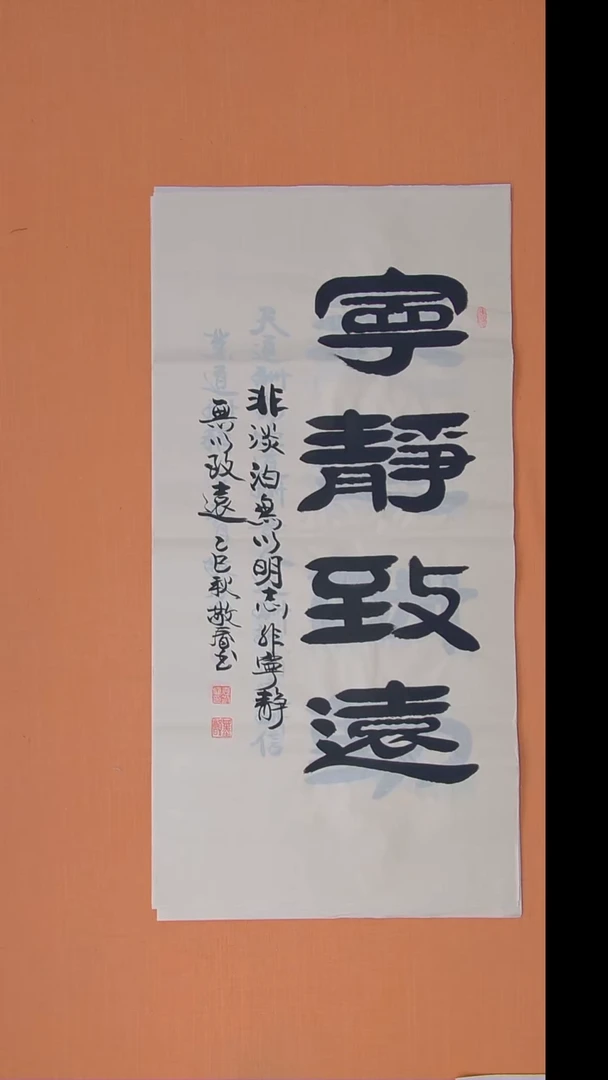 寧靜致遠
非淡泊無以明志非寧靜
無以致遠 乙巳秋敬春书